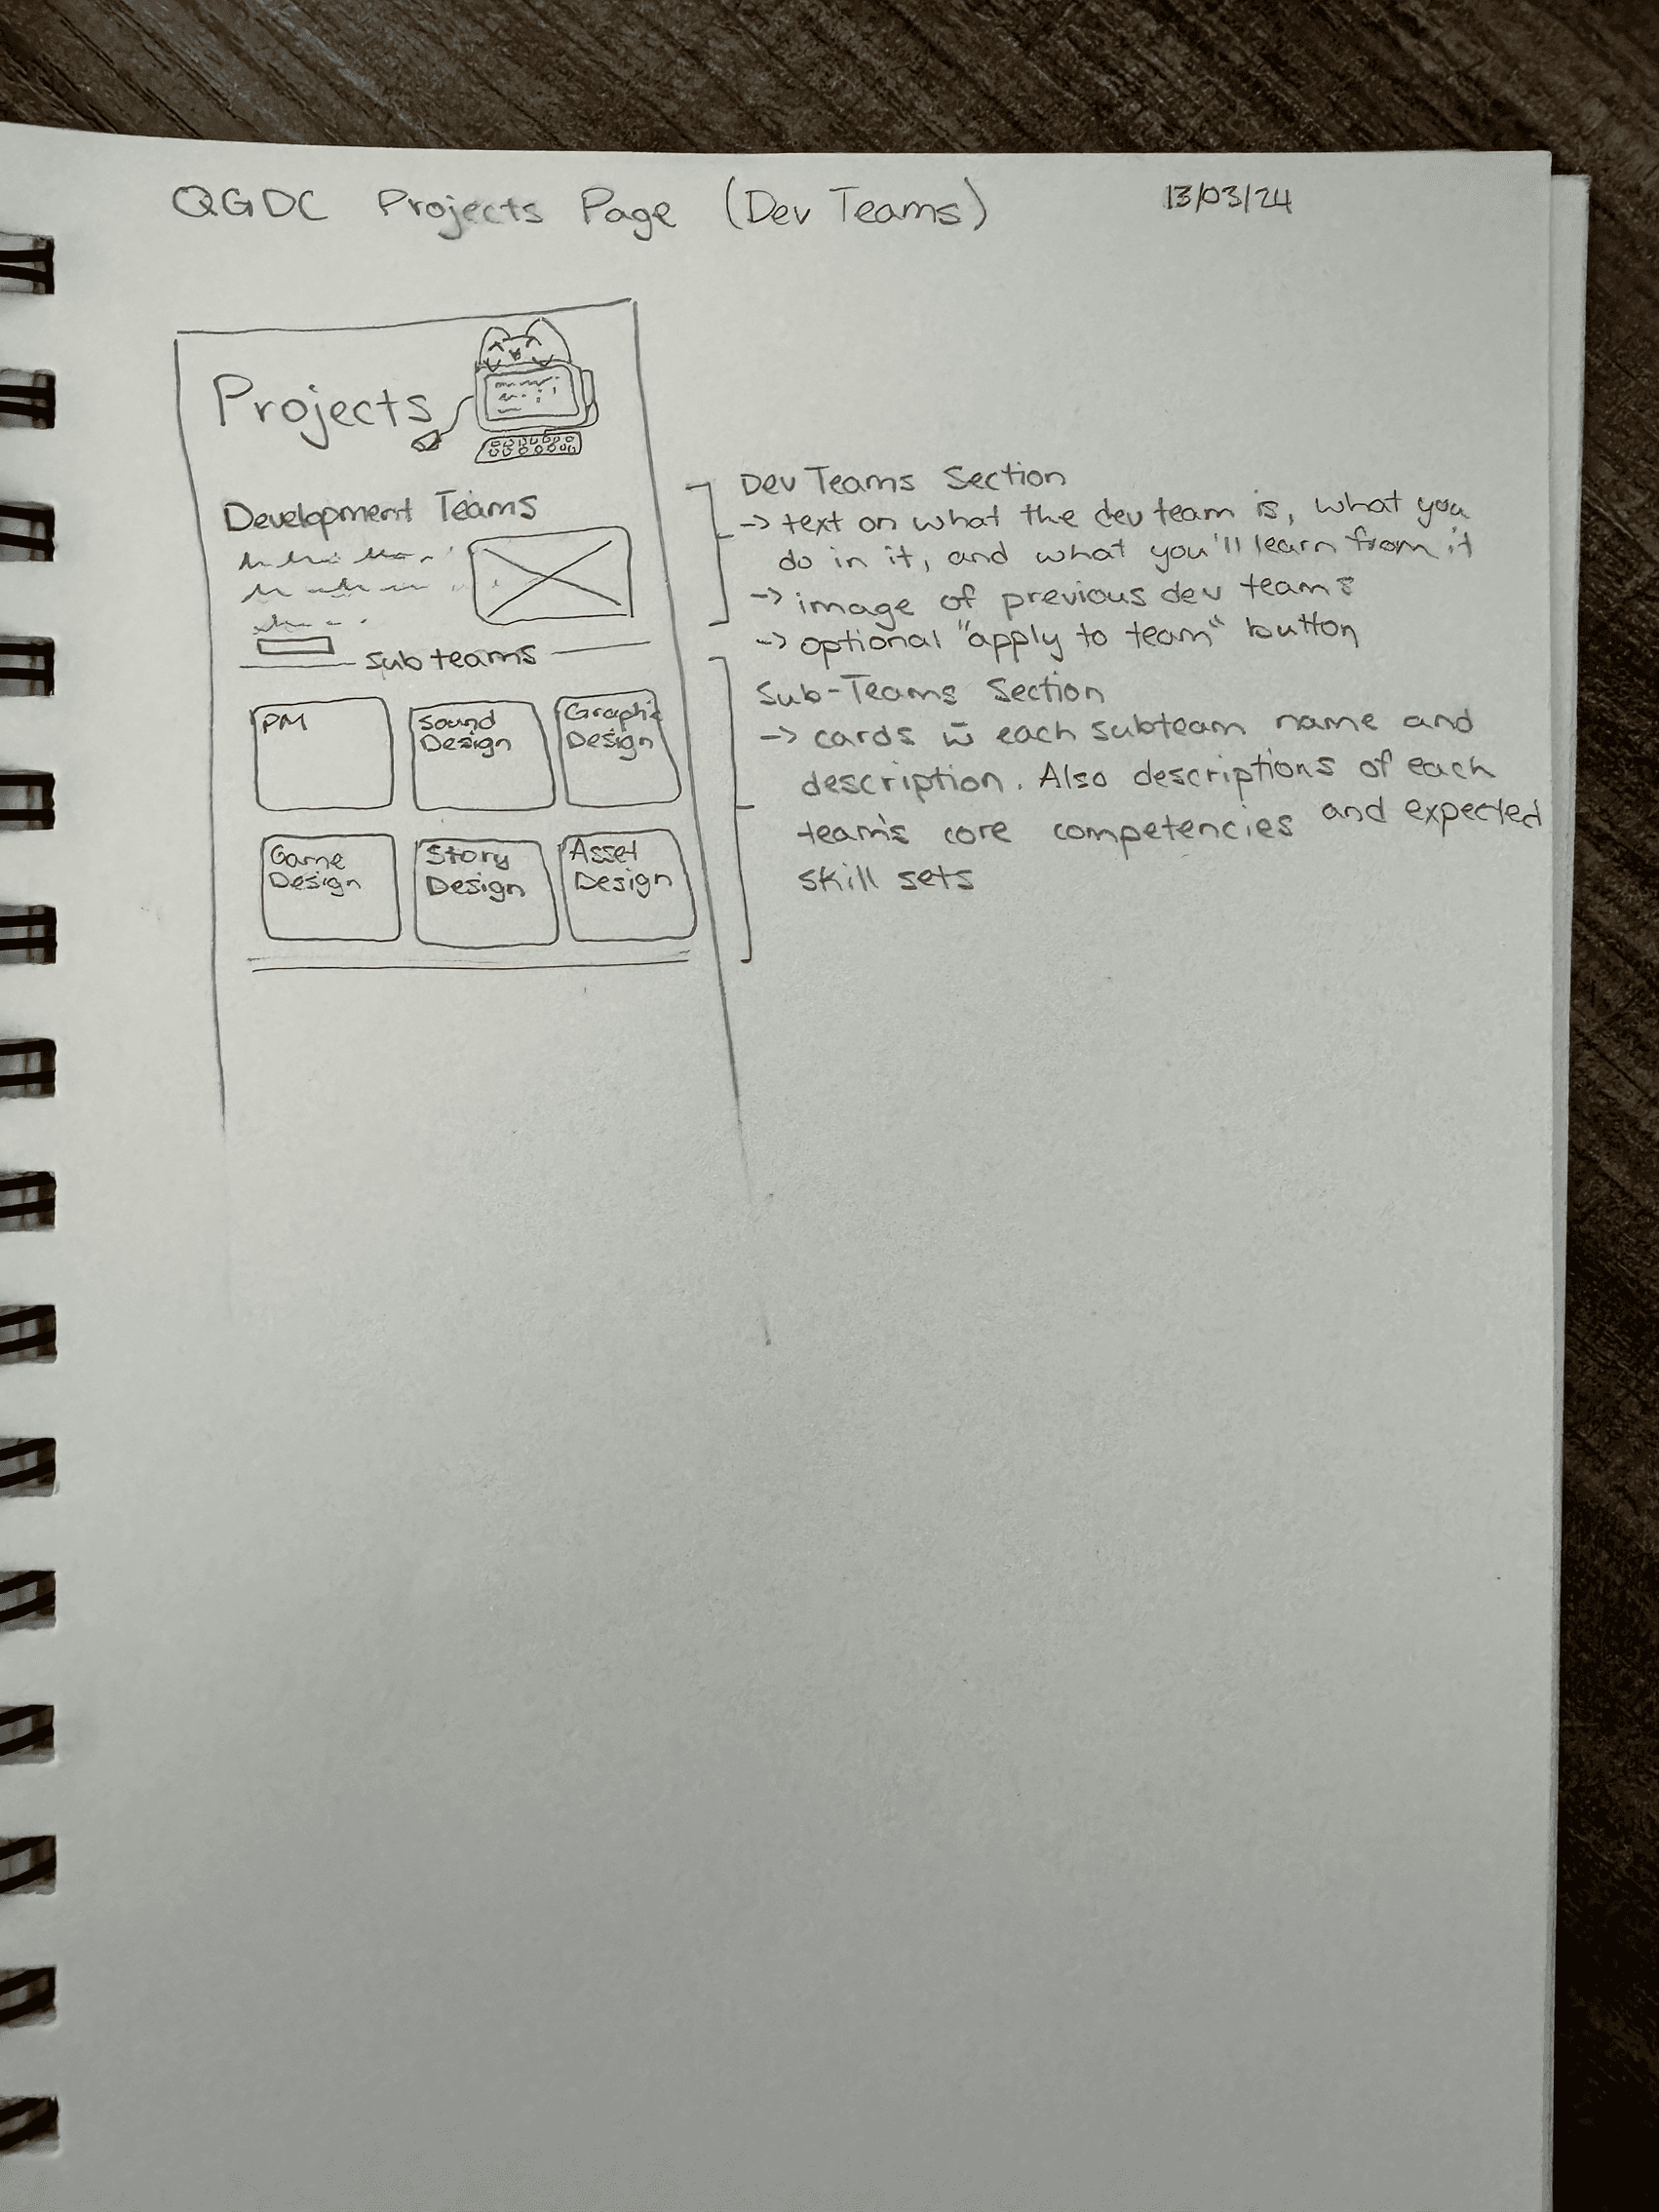 QGDC Projects Page (Dev Teams)
13/03/24
Projects
Development Teams
sub teams
PM
Sound
Design
Graphic
Design
Game
Design
Story
Design
Asset
Design
Dev Teams Section
-> text on what the dev team is, what you
do in it, and what you'll learn from it
-> image of previous dev team?
-> optional "apply to team" button
Sub-Teams Section
-> cards w̄ each subteam name and
description. Also descriptions of each
team's core competencies and expected
skill sets